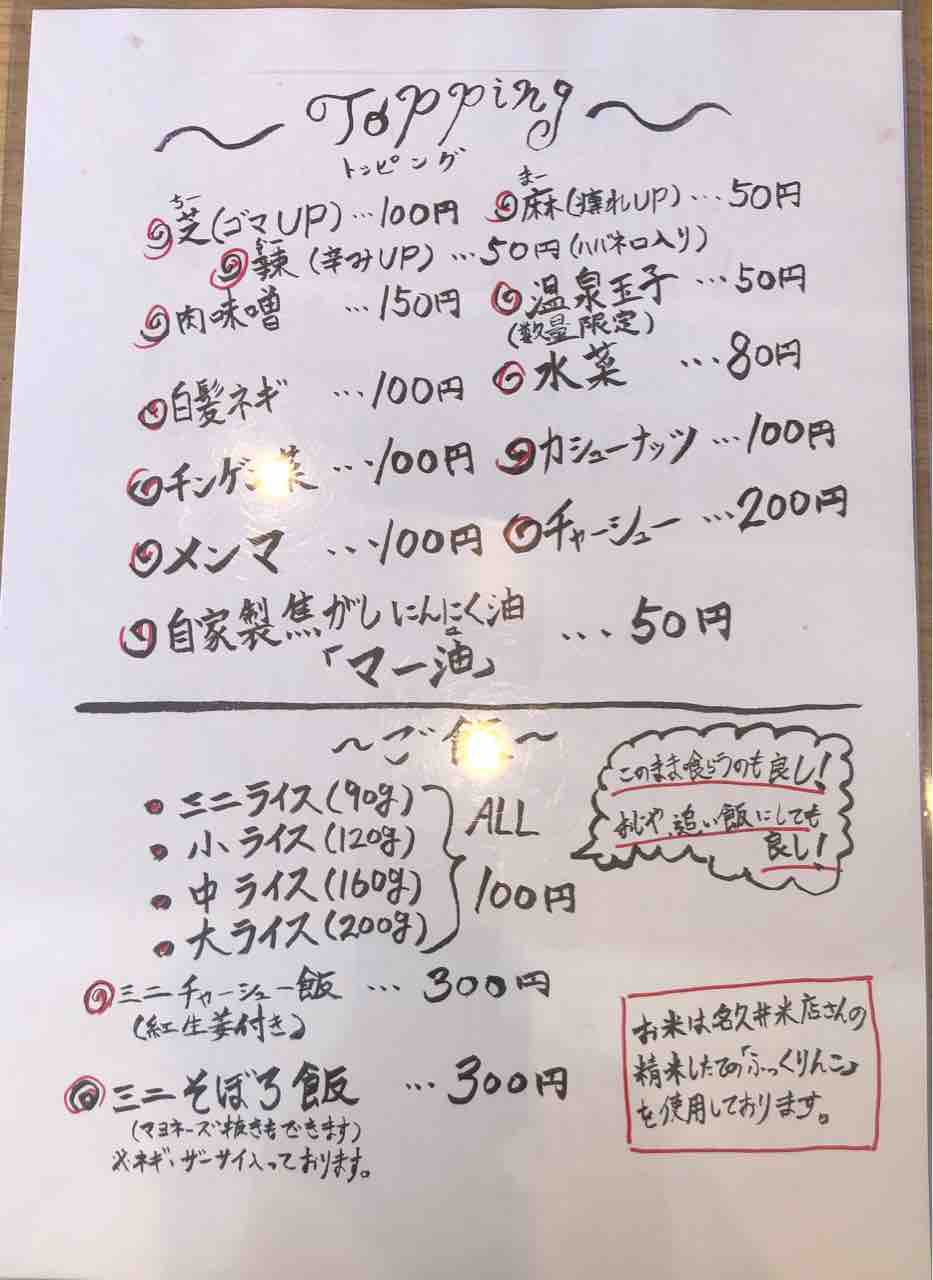 Topping
トッピング
ちー
芝(ゴマUP)…100円
まー
麻(痺れUP)…50円
らー
辣(辛みUP)…50円(ハバネロ入り)
肉味噌 …150円
温泉玉子 …50円
(数量限定)
白髪ネギ …100円
水菜 …80円
チンゲン菜 …100円
カシューナッツ …100円
メンマ …100円
チャーシュー …200円
自家製焦がしにんにく油 …50円
「マー油」
～ご飯～
ミニライス(90g)
小ライス(120g)
中ライス(160g)
大ライス(200g)
ALL
100円
このまま喰らうのも良し!
おじや、追い飯にしても
良し!
ミニチャーシュー飯 …300円
(紅生姜付き)
ミニそぼろ飯 …300円
(マヨネーズ抜きもできます)
※ネギ・ザーサイ入っております。
お米は名久井米店さんの
精米したての「ふっくりんこ」
を使用しております。